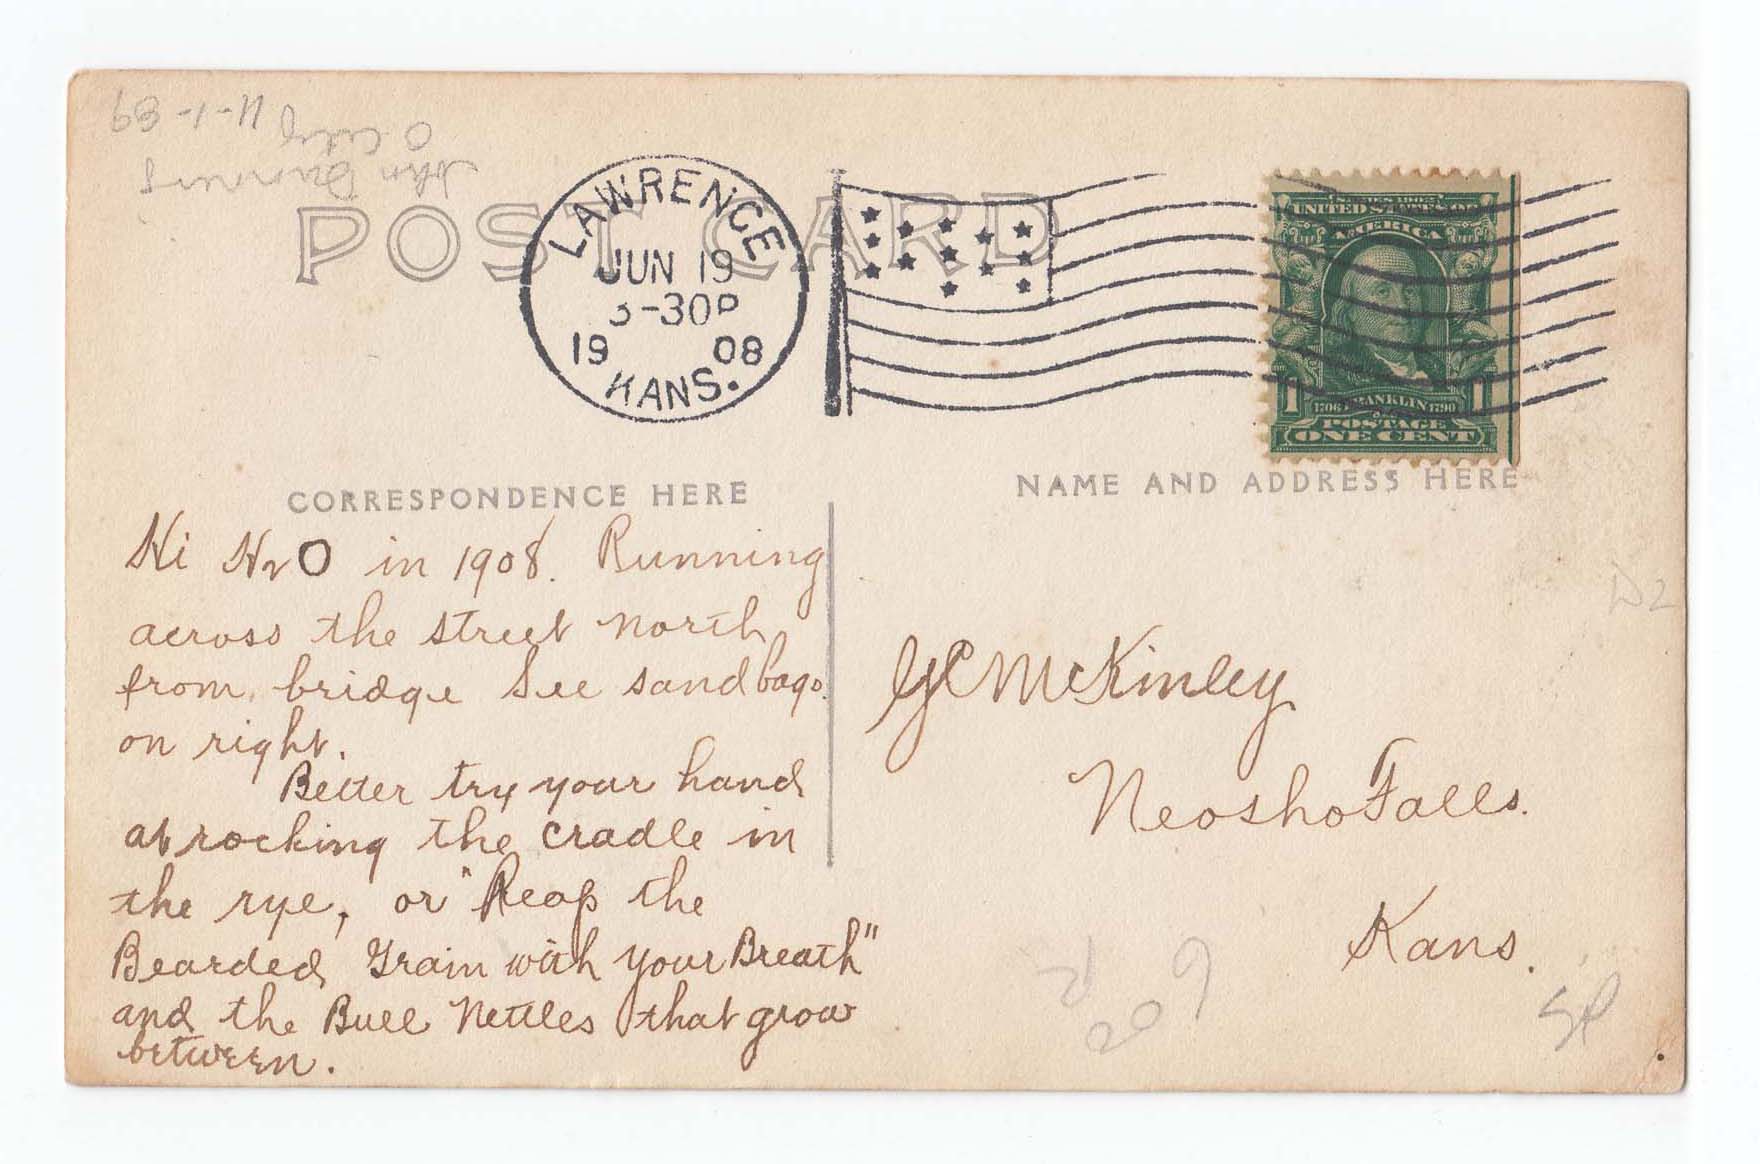 POST CARD
LAWRENCE
JUN 19
3-30P
19 08
KANS.
SERIES 1902
UNITED STATES OF
AMERICA
1 1706 FRANKLIN 1790 1
POSTAGE
ONE CENT
CORRESPONDENCE HERE
Hi H2O in 1908. Running
across the street north
from bridge See sandbags.
on right.
Better try your hand
at rocking the cradle in
the rye, or "Reap the
Bearded Grain with your Breath"
and the Bull Nettles that grow
between.
NAME AND ADDRESS HERE
McKinley
Neosho Falls.
Kans.
11-1-89
O City
John
D2
209